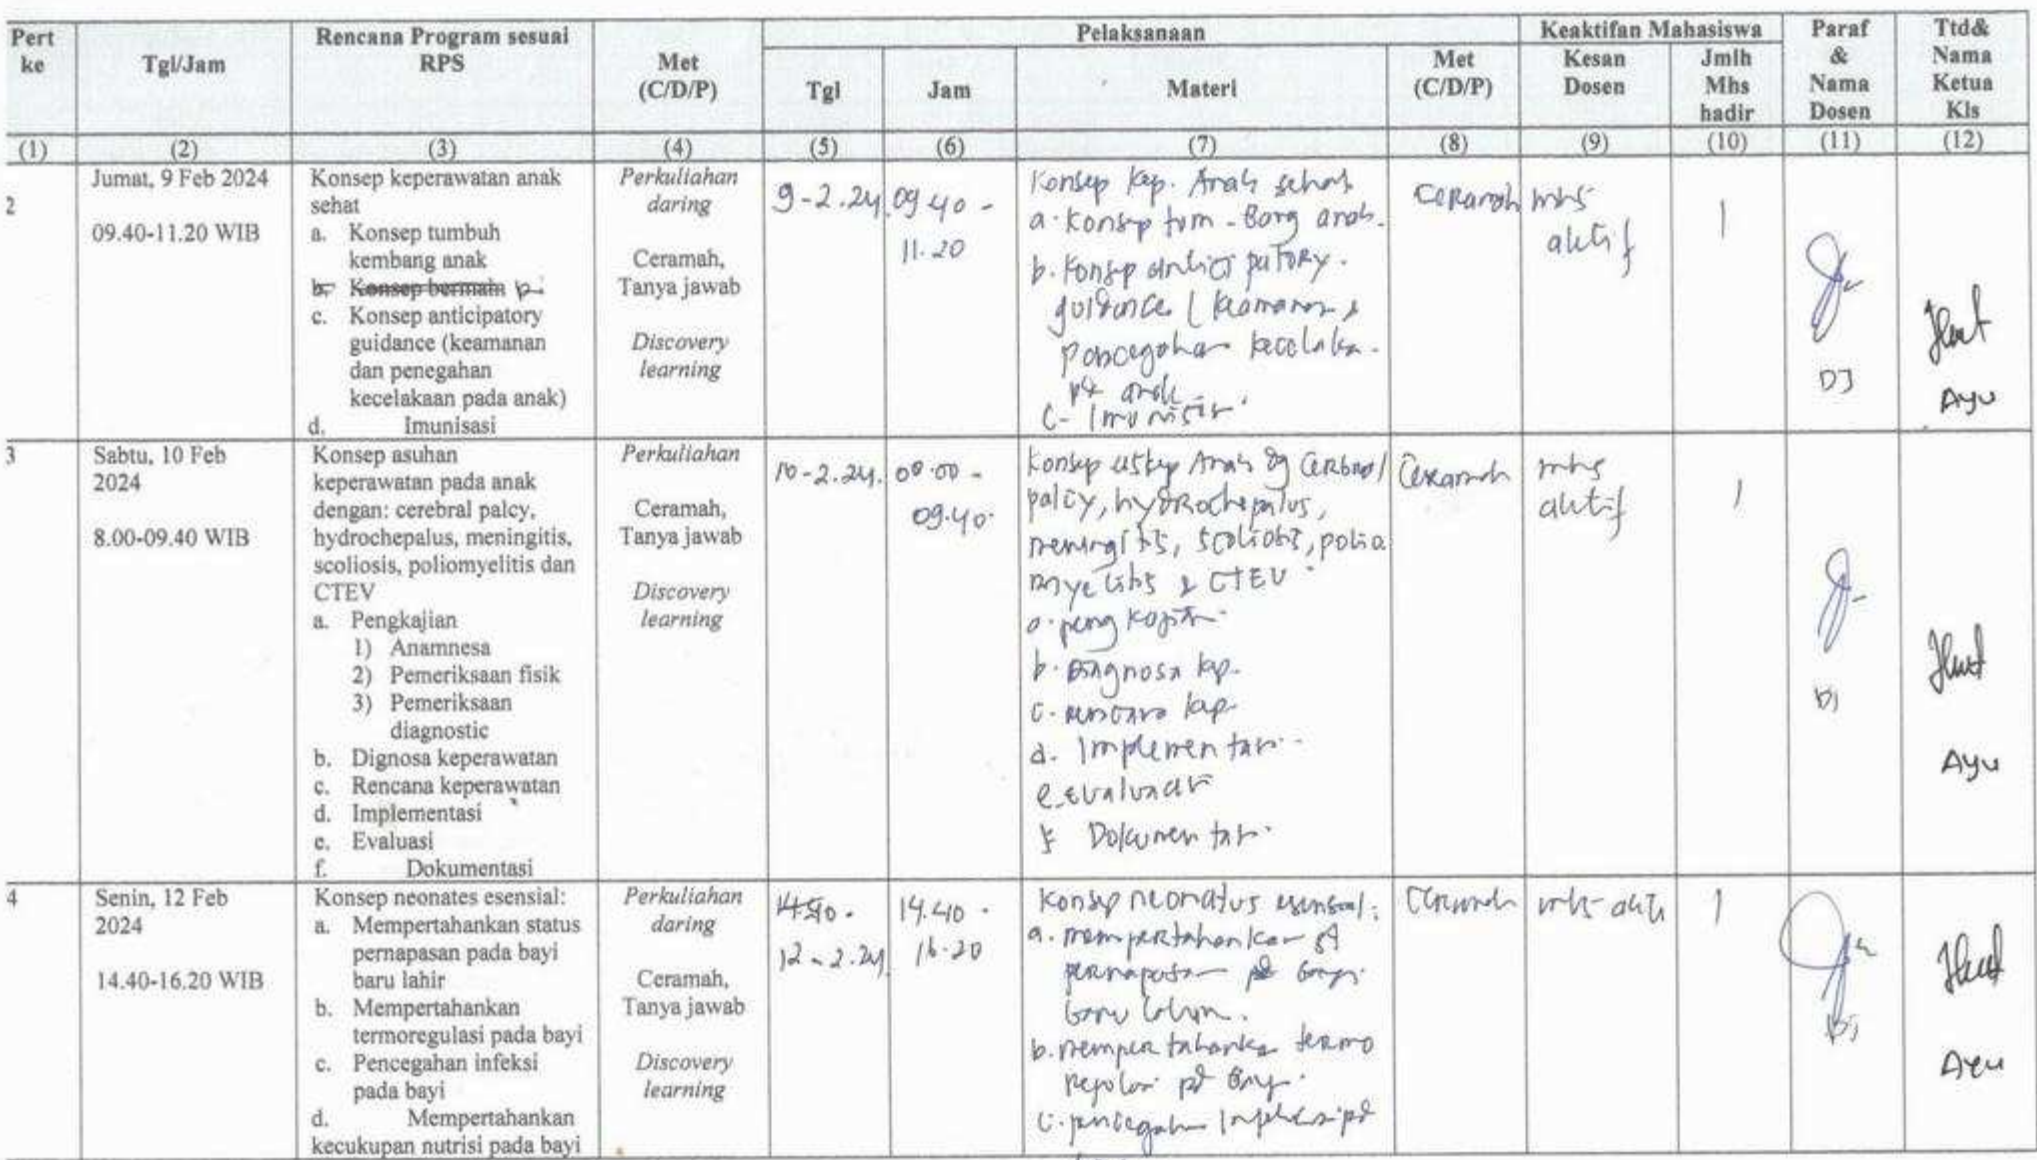 Pert ke
Tgl/Jam
Rencana Program sesuai RPS
Met (C/D/P)
Pelaksanaan
Tgl
Jam
Materi
Met (C/D/P)
Keaktifan Mahasiswa
Kesan Dosen
Jmlh Mhs hadir
Paraf & Nama Dosen
Ttd& Nama Ketua Kls
(1) (2) (3) (4) (5) (6) (7) (8) (9) (10) (11) (12)
2
Jumat, 9 Feb 2024
09.40-11.20 WIB
Konsep keperawatan anak
sehat
a. Konsep tumbuh
kembang anak
b. Konsep bermain
c. Konsep anticipatory
guidance (keamanan
dan penegahan
kecelakaan pada anak)
d. Imunisasi
Perkuliahan
daring
Ceramah,
Tanya jawab
Discovery
learning
9-2.24
09.40 -
11.20
Konsep kep. Anak sehat
a. Konsep tum-bang anak.
b. Konsep anticipatory
guidance (keamanan &
pencegahan kecelaka.
pd anak
c- Imunisasi
Ceramah
mhs
aktif
1
DJ
Ayu
3
Sabtu, 10 Feb
2024
8.00-09.40 WIB
Konsep asuhan
keperawatan pada anak
dengan: cerebral palcy,
hydrochepalus, meningitis,
scoliosis, poliomyelitis dan
CTEV
a. Pengkajian
1) Anamnesa
2) Pemeriksaan fisik
3) Pemeriksaan
diagnostic
b. Dignosa keperawatan
c. Rencana keperawatan
d. Implementasi
e. Evaluasi
f. Dokumentasi
Perkuliahan
Ceramah,
Tanya jawab
Discovery
learning
10-2.24.
08.00 -
09.40.
Konsep askep Anak dg Cerebral
palcy, hydrochepalus,
meningitis, scoliosis, polio
myelitis & CTEV
a. pengkajian
b. Diagnosa kep.
c. rencana kep.
d. Implementasi
e. evaluasi
f Dokumentasi
Ceramah
mhs
aktif
1
DJ
Ayu
4
Senin, 12 Feb
2024
14.40-16.20 WIB
Konsep neonates esensial:
a. Mempertahankan status
pernapasan pada bayi
baru lahir
b. Mempertahankan
termoregulasi pada bayi
c. Pencegahan infeksi
pada bayi
d. Mempertahankan
kecukupan nutrisi pada bayi
Perkuliahan
daring
Ceramah,
Tanya jawab
Discovery
learning
12-2.24
14.40 -
16.20
Konsep neonatus esensial:
a. mempertahankan
pernapasan pd bayi
baru lahir.
b. mempertahankan termo
regulasi pd bayi.
c. pencegahan infeksi pd
Ceramah
mhs aktif
1
DJ
Ayu